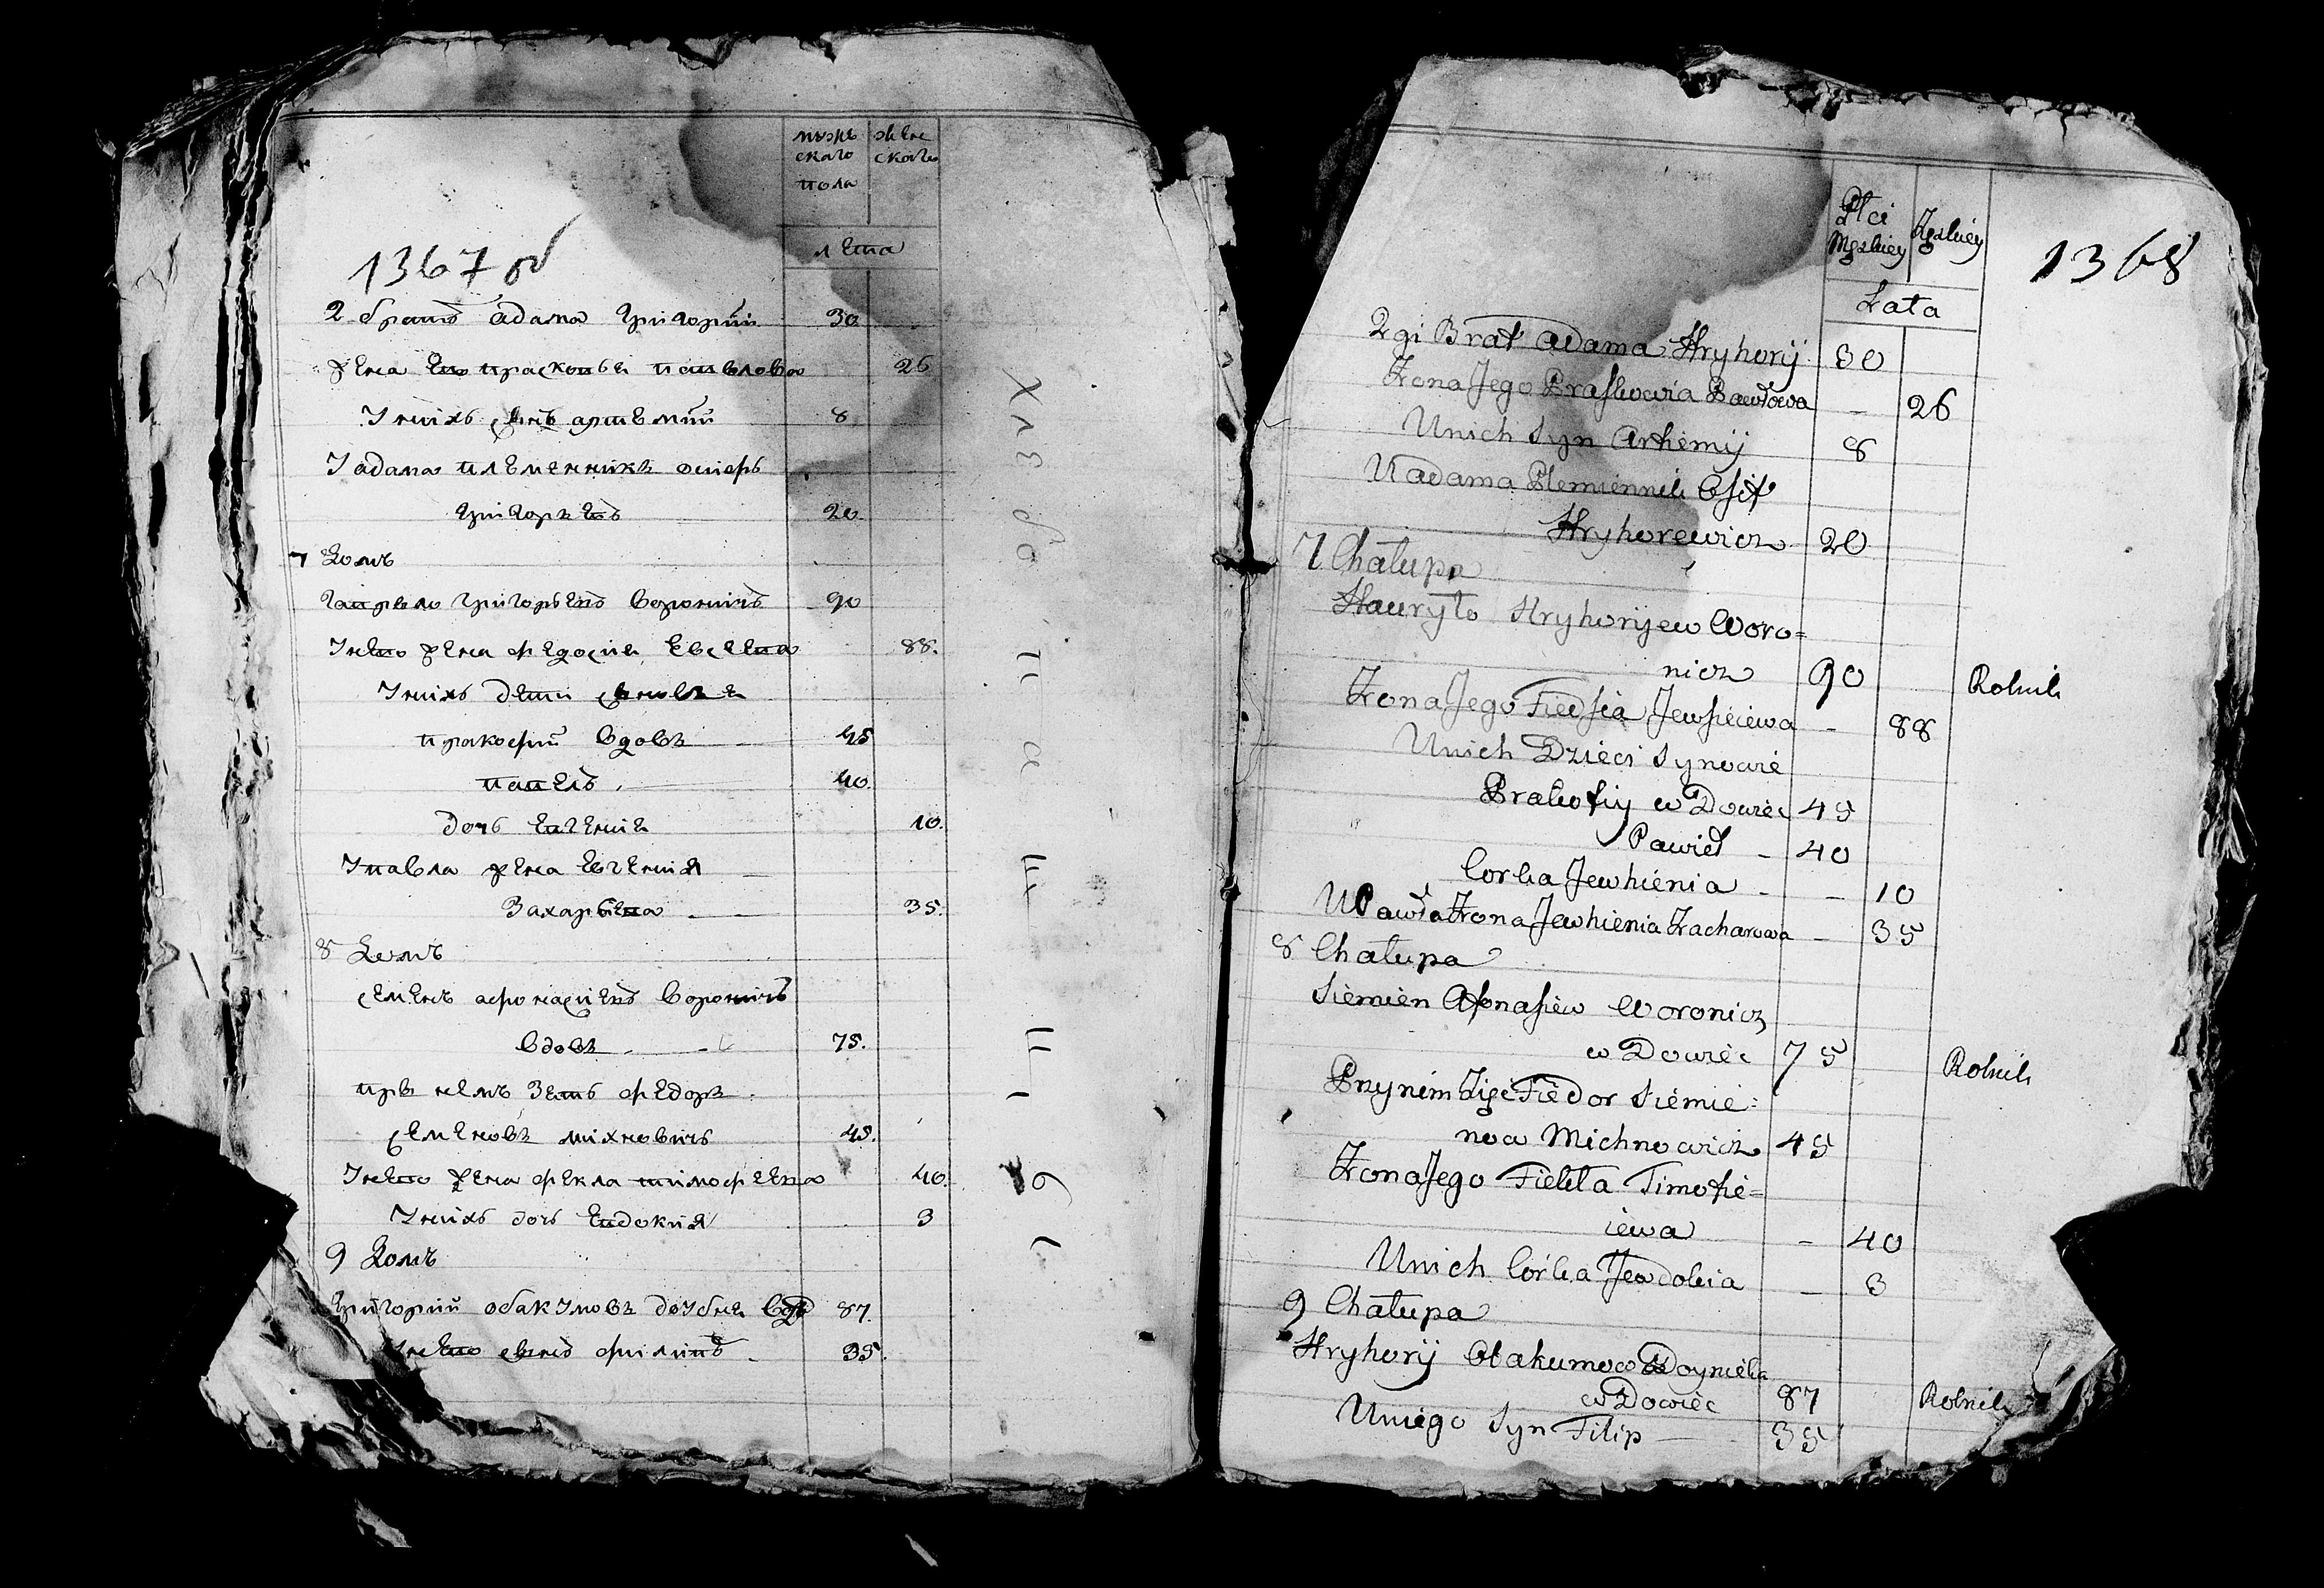 мужескаго пола
женскаго
лета
1367 об
2 братъ адама григорий 30
жена его прасковея павлова 26
У нихъ сынъ артемий 8
У адама племенникъ осифъ
григоревъ 20
7 Домъ
гаврыло григорьевъ вороничъ 90
У него жена федосия евсеева 88.
У нихъ дети сыновья
пракофий вдовъ 45
павелъ 40.
дочь евгения 10.
У павла жена евгения
Захарьева 35.
8 Домъ
семенъ афонасиевъ вороничъ
вдовъ 75.
при немъ Зеть федоръ
семеновъ михновичъ 45.
У него жена фекла тимофеева 40.
У нихъ дочь евдокия 3
9 Домъ
григорий абакумовъ вдовъ 87.
У него сынъ филипъ 35.
Płci Męzkiey
Żęzkiey
Lata
1368
2gi Brat Adama Hryhorij 30
Żona Jego Praskowia Pawłowa - 26
U nich Syn Artiemij 8
U adama Plemiennik Osif
Hryhorewicz 20
7 Chałupa
Hauryło Hryhoryiew Woro=
nicz 90 Rolnik
Żona Jego Fiedsia Jewsieiewa - 88
U nich Dzieci Synowie
Prakofiy w Dowiec 45
Pawieł - 40
Corka Jewhienia - - 10
U Pawła Żona Jewhienia Zacharowa - 35
8 Chałupa
Siemien Afonasiew Woronicz
w Dowiec 75 Rolnik
Przy nim Zięć Fiedor Siemie=
now Michnowicz 45
Żona Jego Fiekła Timofie=
iewa - 40
U nich Corka Jewdokia - 3
9 Chałupa
Hryhorij Abakumow
w Dowiec 87 Rolnik
U niego Syn Filip 35